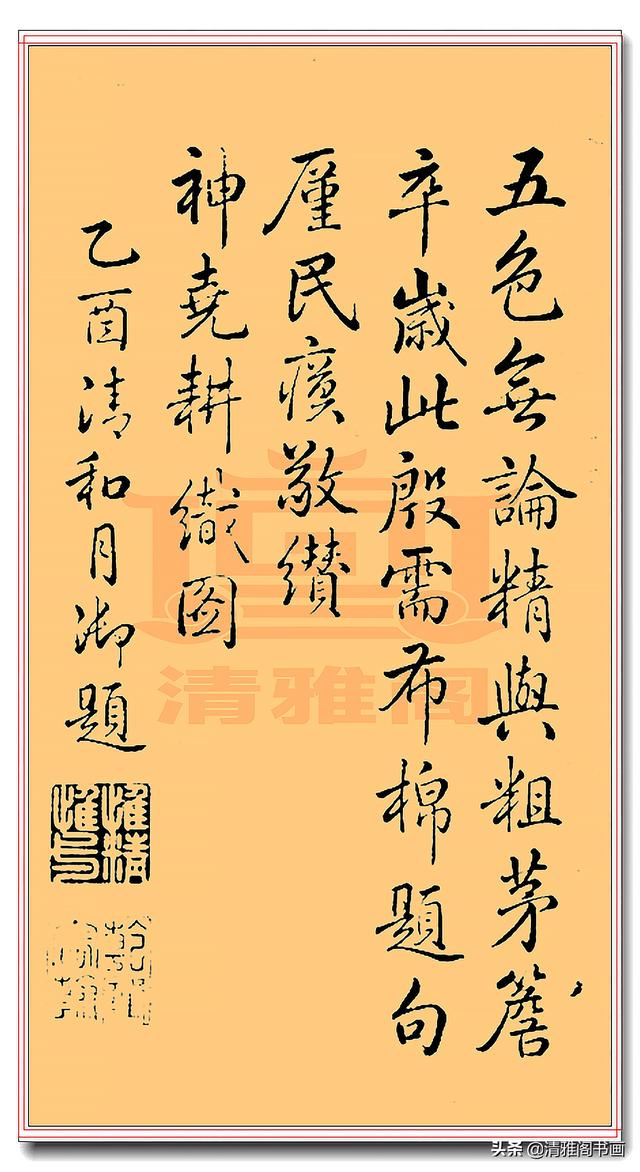 五色無論精與粗茅簷
卒歲此殷需布棉題句
厪民瘼敬纘
神堯耕織圖
乙酉清和月御題
惟精惟一
清雅阁
头条 @清雅阁书画